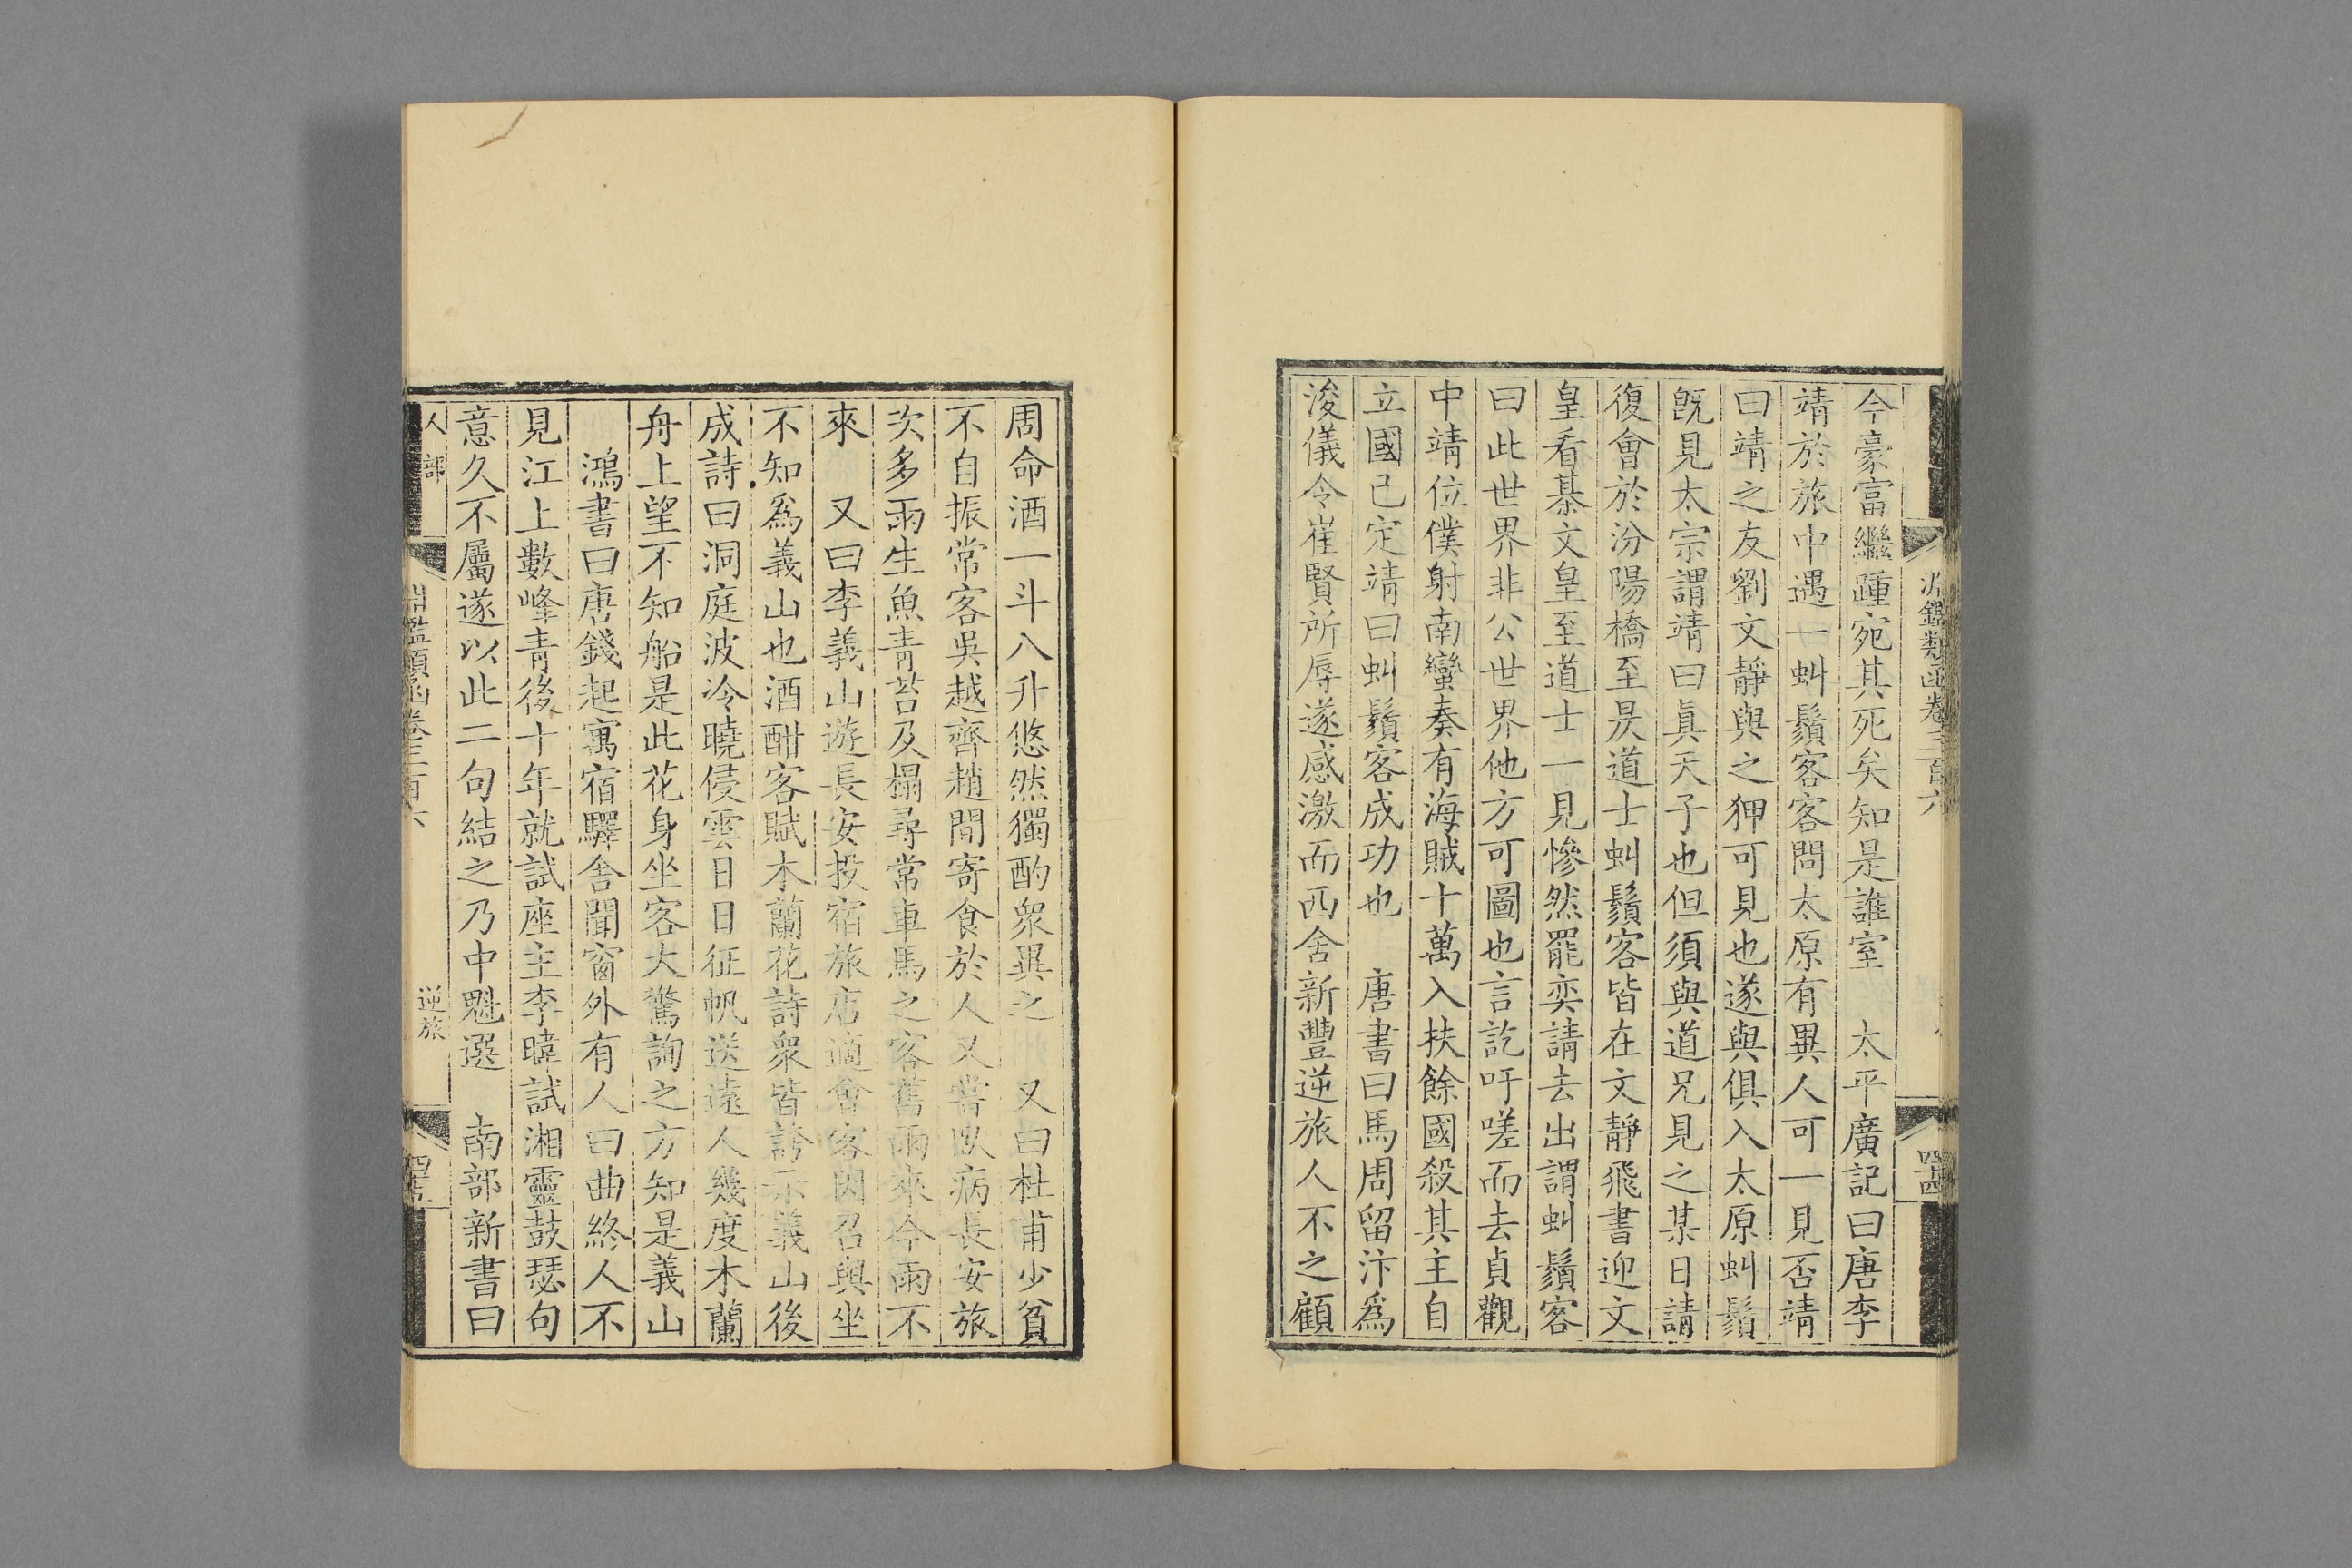 淵鑑類函卷三百六
四十四
今豪富繼踵宛其死矣知是誰室　太平廣記曰唐李
靖於旅中遇一虯鬚客客問太原有異人可一見否靖
曰靖之友劉文靜與之狎可見也遂與俱入太原虯鬚
旣見太宗謂靖曰眞天子也但須與道兄見之某日請
復會於汾陽橋至昃道士虯鬚客皆在文靜飛書迎文
皇看棊文皇至道士一見慘然罷奕請去出謂虯鬚客
曰此世界非公世界他方可圖也言訖吁嗟而去貞觀
中靖位僕射南蠻奏有海賊十萬入扶餘國殺其主自
立國已定靖曰虯鬚客成功也　唐書曰馬周留汴爲
浚儀令崔賢所辱遂感激而西舍新豐逆旅人不之顧
周命酒一斗八升悠然獨酌衆異之　又曰杜甫少貧
不自振常客吳越齊趙間寄食於人又嘗臥病長安旅
次多雨生魚靑苔及榻尋常車馬之客舊雨來今雨不
來　又曰李義山遊長安投宿旅店適會客因召與坐
不知爲義山也酒酣客賦木蘭花詩衆皆誇示義山後
成詩曰洞庭波冷曉侵雲日日征帆送遠人幾度木蘭
舟上望不知船是此花身坐客大驚詢之方知是義山
鴻書曰唐錢起寓宿驛舍聞窗外有人曰曲終人不
見江上數峰靑後十年就試座主李暐試湘靈鼓瑟句
意久不屬遂以此二句結之乃中魁選　南部新書曰
人部
淵鑑類函卷三百六
逆旅
四十五